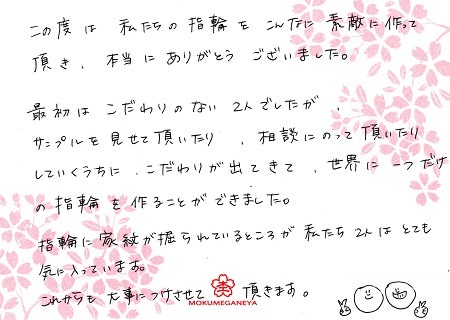 この度は 私たちの指輪を こんなに 素敵に作って
頂き、本当に ありがとう ございました。
最初は こだわりのない 2人でしたが、
サンプルを見せて頂いたり、相談にのって頂いたり
していくうちに、こだわりが出てきて、世界に一つだけ
の指輪を作ることができました。
指輪に家紋が掘られているところが 私たち2人は とても
気に入っています。
これからも 大事につけさせて 頂きます。
MOKUMEGANEYA